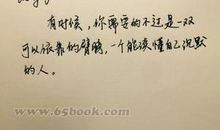 有时候，你需要的不过是一双
可以依靠的臂膀，一个能读懂自己沉默
的人。
www.65book.com